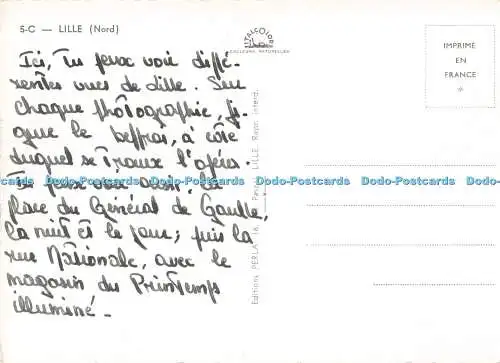 5-C — LILLE (Nord)
COULEURS NATURELLES
IMPRIMÉ
EN
FRANCE
*
Ici, tu peux voir diffé-
rentes vues de Lille. Sur
chaque photographie, fi-
gure le beffroi, à côté
duquel se trouve l'opéra.
Tu peux voir aussi la
place du Général de Gaulle,
la nuit et le jour; puis la
rue Nationale, avec le
magasin du Printemps
illuminé.
Dodo-Postcards Dodo-Postcards Dodo-Postcards Dodo-Postcards Dodo-Postcards Dodo-Postcards
Editions PERLA, LILLE. Repr. interd.